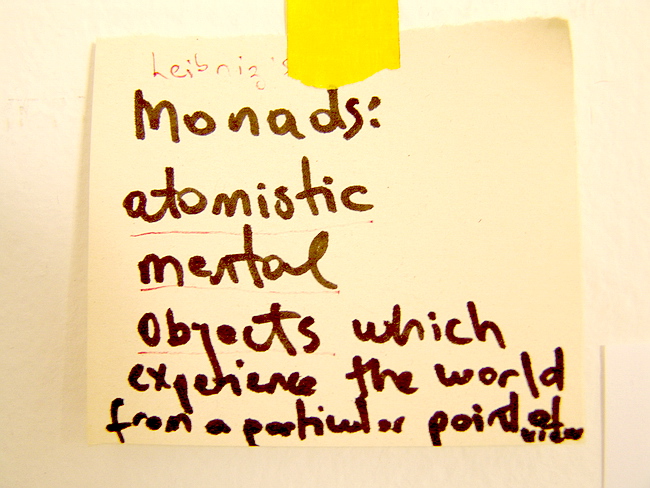 Leibniz's
Monads:
atomistic
mental
objects which
experience the world
from a particular point of
view